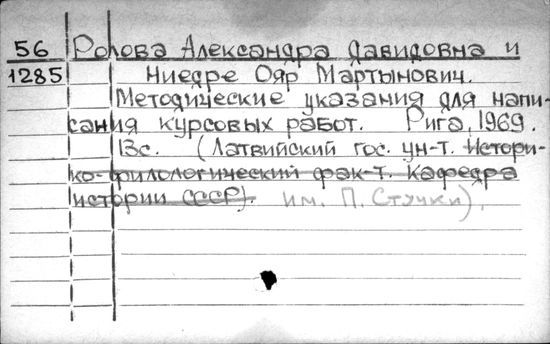 56 Ролова Александра Давидовна и
1285 Ниедре Ояр Мартынович.
Методические указания для напи-
сания курсовых работ. Рига, 1969.
13с. (Латвийский гос. ун-т. Истори-
ко-филологический фак-т. Кафедра
истории СССР). им. П. Стучки),